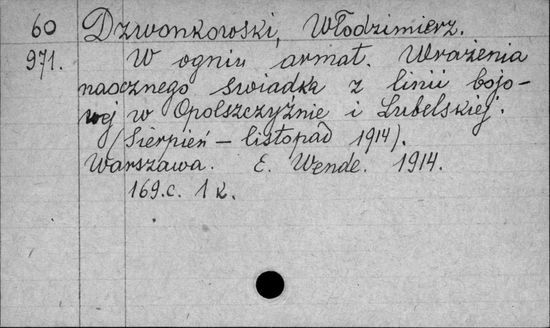 60 Dzwonkowski, Włodzimierz.
971. W ogniu armat. Wrażenia
naocznego świadka z linii bojo-
wej w Opolszczyźnie i Lubelskiej.
(Sierpień – listopad 1914).
Warszawa. E. Wende. 1914.
169.c. 1 k.